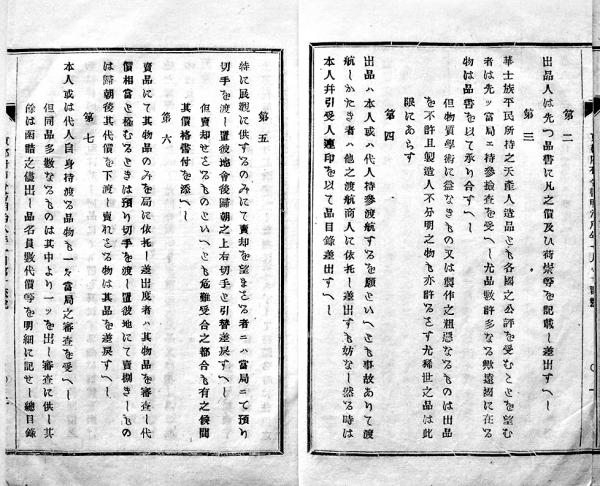 第二
出品人は先つ品書に凡之價及ひ荷崇等を記載し差出すへし
第三
華士族平民所持之天產人造品とも各國之公評を受むことを望む
者は先ッ當局ェ持參撿査を受へし尤品數許多なる歟遠國に在る
物は品書を以て承り合すへし
但物質學術に益なきもの又は製作之粗惡なるものは出品
を不許且製造人不分明之物も亦許るさす尤稀世之品は此
限にあらす
第四
出品ハ本人或ハ代人持參渡航するを願といへとも事故ありて渡
航しかたき者ハ他之渡航商人に依托し差出すも妨なし然る時は
本人并引受人連印を以て品目錄差出すへし
第五
特に展觀に供するのみにて賣却を望まさる者ニハ當局ニて預り
切手を渡し置彼地會後歸朝之上右切手と引替差戾すへし
但賣却せさるものといへとも危難受合之都合も有之後間
其價格書付を添へし
第六
賣品にて其物品のみを局に依托し差出度者ハ其物品を審査し代
價相當と極むるときは預り切手を渡し置彼地にて賣捌きしもの
は歸朝後其代價を下渡し賣れさる物は其品を差戾すへし
第七
本人或は代人自身持渡る品物も一々當局之審査を受へし
但同品多數なるものは其中より一ッを出し審査に供し其
餘は函詰之儘出し品名員數代價等を明細に記せし總目錄